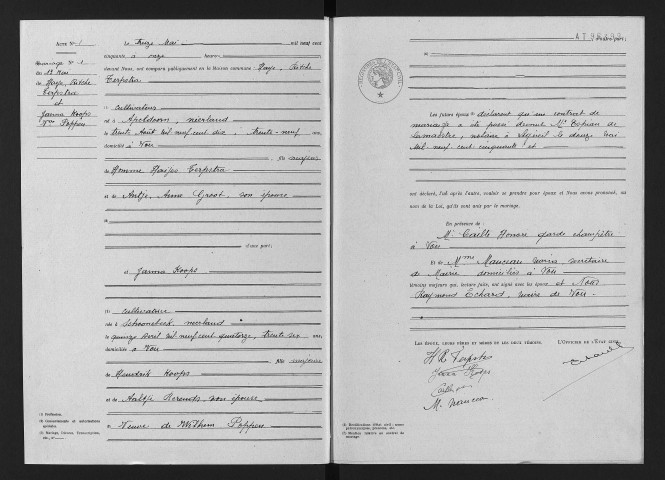 Acte N° 1
Mariage N° 1
du 13 Mai
Haye, Ritske
Terpstra
et
Janna Koops
Vve Poppen
Le treize Mai mil neuf cent
cinquante à onze heures
devant Nous, ont comparu publiquement en la Maison commune : Haye, Ritske
Terpstra
(1) cultivateur
né à Apeldoorn, néerland
le trente Août mil neuf cent dix ; trente-neuf ans,
domicilié à Vou
fils majeur
de Homme Haijes Terpstra
et de Antje, Anna Groot, son épouse
d'une part,
et Janna Koops
(1) cultivatrice
née à Schoonebeek, néerland
le quinze Avril mil neuf cent quatorze, trente six ans,
domiciliée à Vou
fille majeure
de Hendrik Koops
et de Aaltje Berends son épouse
Veuve de Willem Poppen
(1) Profession.
d'autre part;
Les futurs époux déclarent qu'un contrat de
mariage a été passé devant Me
notaire à Ligueil le douze Mai
mil neuf cent cinquante et
ont déclaré, l'un après l'autre, vouloir se prendre pour époux et Nous avons prononcé, au
nom de la Loi, qu'ils sont unis par le mariage.
En présence de :
M. Caillé Honoré garde champêtre
à Vou
Et de Mme Manceau secrétaire
de Mairie domiciliés à Vou
témoins majeurs qui, lecture faite, ont signé avec les époux et Nous
Raymond Echard, maire de Vou.
LES ÉPOUX, LEURS PÈRES ET MÈRES ET LES DEUX TÉMOINS,
L'OFFICIER DE L'ÉTAT CIVIL,
H R Terpstra
Janna Koops
Caillé
M. Manceau
Echard